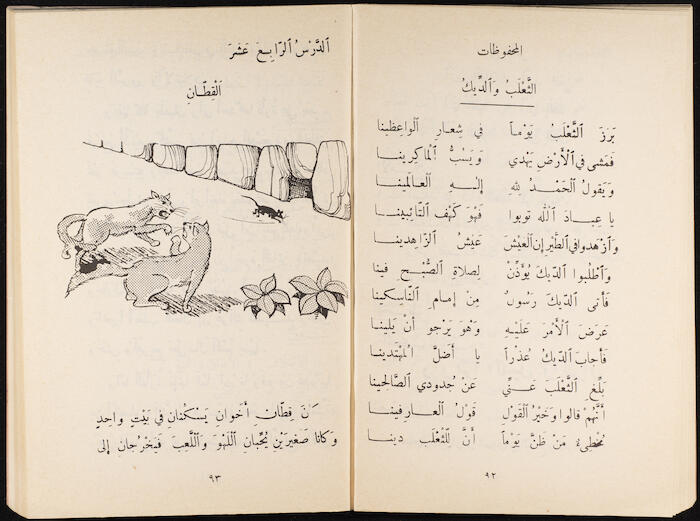 المحفوظات
الثَّعْلَبُ وَالدِّيكُ
بَرَزَ الثَّعْلَبُ يَوْماً في شِعارِ الواعِظينا
فَمَشى في الْأَرْضِ يَهْدي وَيَسُبُّ الْماكِرينا
وَيَقولُ الْحَمْدُ لِلّهِ إِلهِ الْعالَمينا
يا عِبادَ اللهِ توبوا فَهْوَ كَهْفُ التّائِبينا
وَازْهَدوا في الطَّيْرِ إِن الْعَيْشَ عَيْشُ الزّاهِدينا
وَاطْلُبوا الدّيكَ يُؤَذِّنْ لِصَلاةِ الصُّبْحِ فينا
فَأَتى الدّيكَ رَسُولٌ مِن إِمامِ النّاسِكينا
عَرَضَ الْأَمْرَ عَلَيْهِ وَهْوَ يَرْجو أَنْ يَلينا
فَأَجابَ الدّيكُ عُذْراً يا أَضَلَّ الْمُهْتَدينا
بَلِّغِ الثَّعْلَبَ عَنّي عَنْ جُدودي الصّالِحينا
أَنَّهُمْ قالوا وَخَيْرُ الْقَوْلِ قَوْلُ الْعارِفينا
مُخْطِئٌ مَنْ ظَنَّ يَوْماً أَنَّ لِلثَّعْلَبِ دينا
٩٢
الدَّرْسُ الرّابِعَ عَشَرَ
الْقِطّانِ
كانَ قِطّانِ أَخَوانِ يَسْكُنانِ في بَيْتٍ واحِدٍ
وَكانا صَغيرَيْنِ يُحِبّانِ اللَّهْوَ وَاللَّعِبَ فَيَخْرُجانِ إِلى
٩٣